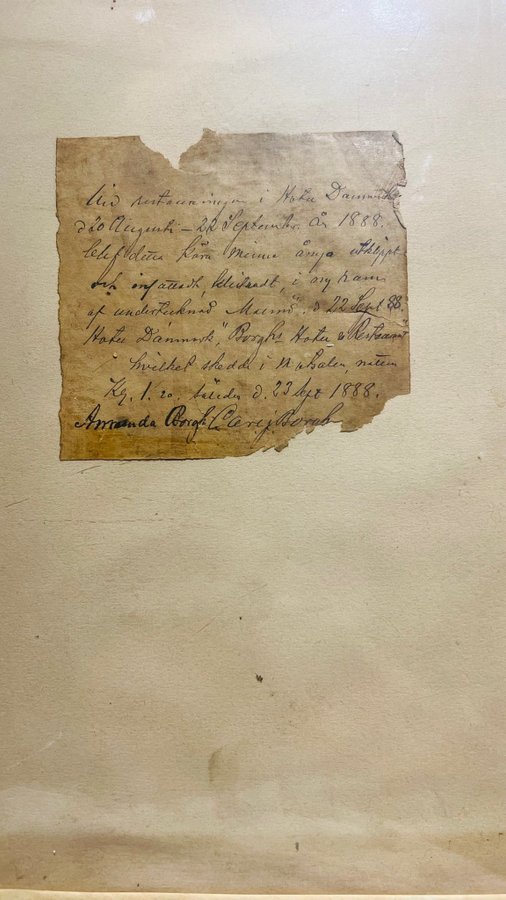 Vid restaureringen i Hotel Danmark
d 20 Augusti – 22 September År 1888.
blef detta kära minne ånyo utklippt
och infattadt, i ny ram
af undertecknad Malmö. d 22 Sept 88.
Hotel Danmark", Borghs Hotel & Restaurant"
hvilket skedde i
Kl. 1. d. 23 Sept 1888.
Amanda Borgh Borgh